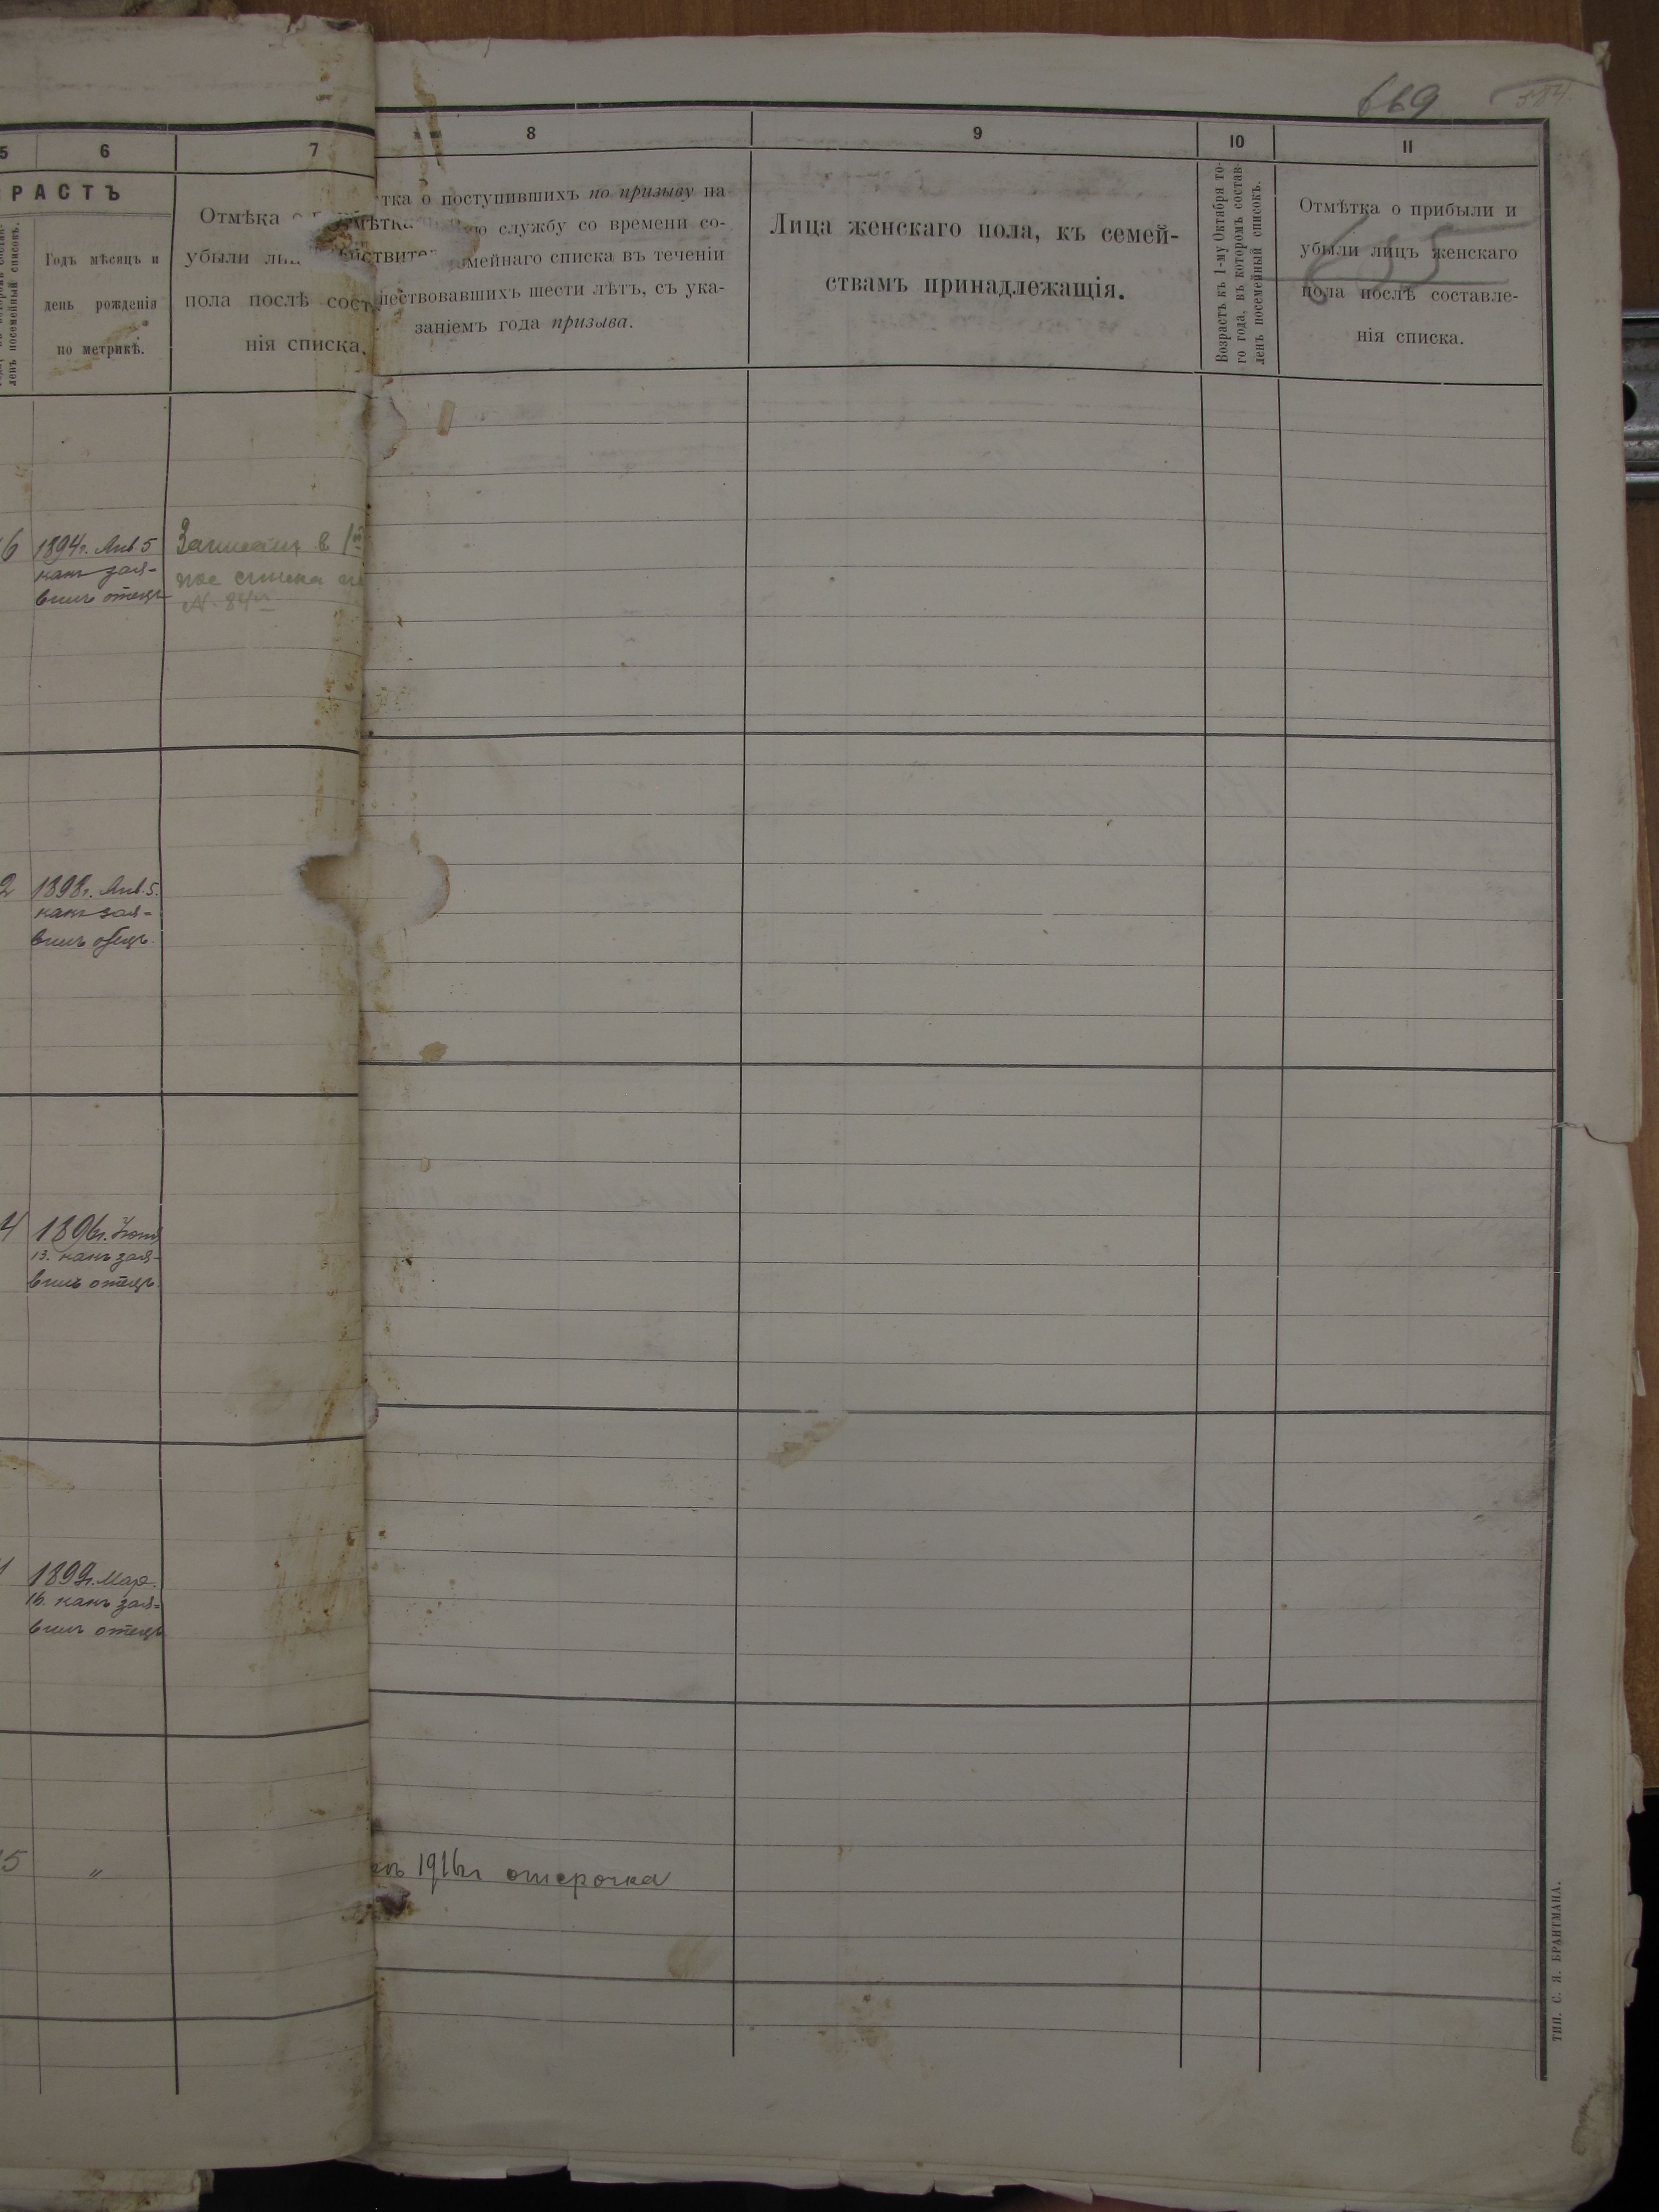 669 584
5 6 7
РАСТЪ
Годъ мѣсяцъ и
день рожденія
по метрикѣ.
Отмѣка
убыли
пола послѣ
нія списка.
8 9 10 11
о поступившихъ по призыву на
службу со времени со-
списка въ теченіи
шести лѣтъ, съ ука-
заніемъ года призыва.
Лица женскаго пола, къ семей-
ствамъ принадлежащія.
Возрастъ къ 1-му Октября то-
го года, въ которомъ состав-
ленъ посемейный списокъ.
Отмѣтка о прибыли и
убыли лицъ женскаго
пола послѣ составле-
нія списка.
655
6 1894г. Янв 5
какъ зая-
вилъ отецъ
Записанъ в
пос списка
№ 84
2 1898г. Янв. 5.
какъ зая-
вилъ отецъ.
4 1896г.
13. какъ зая-
вилъ отецъ.
1899г. Мар.
16. какъ зая-
вилъ отецъ
5 "
1916г отсрочка
ТИП. С. Я. БРАНТМАНА.